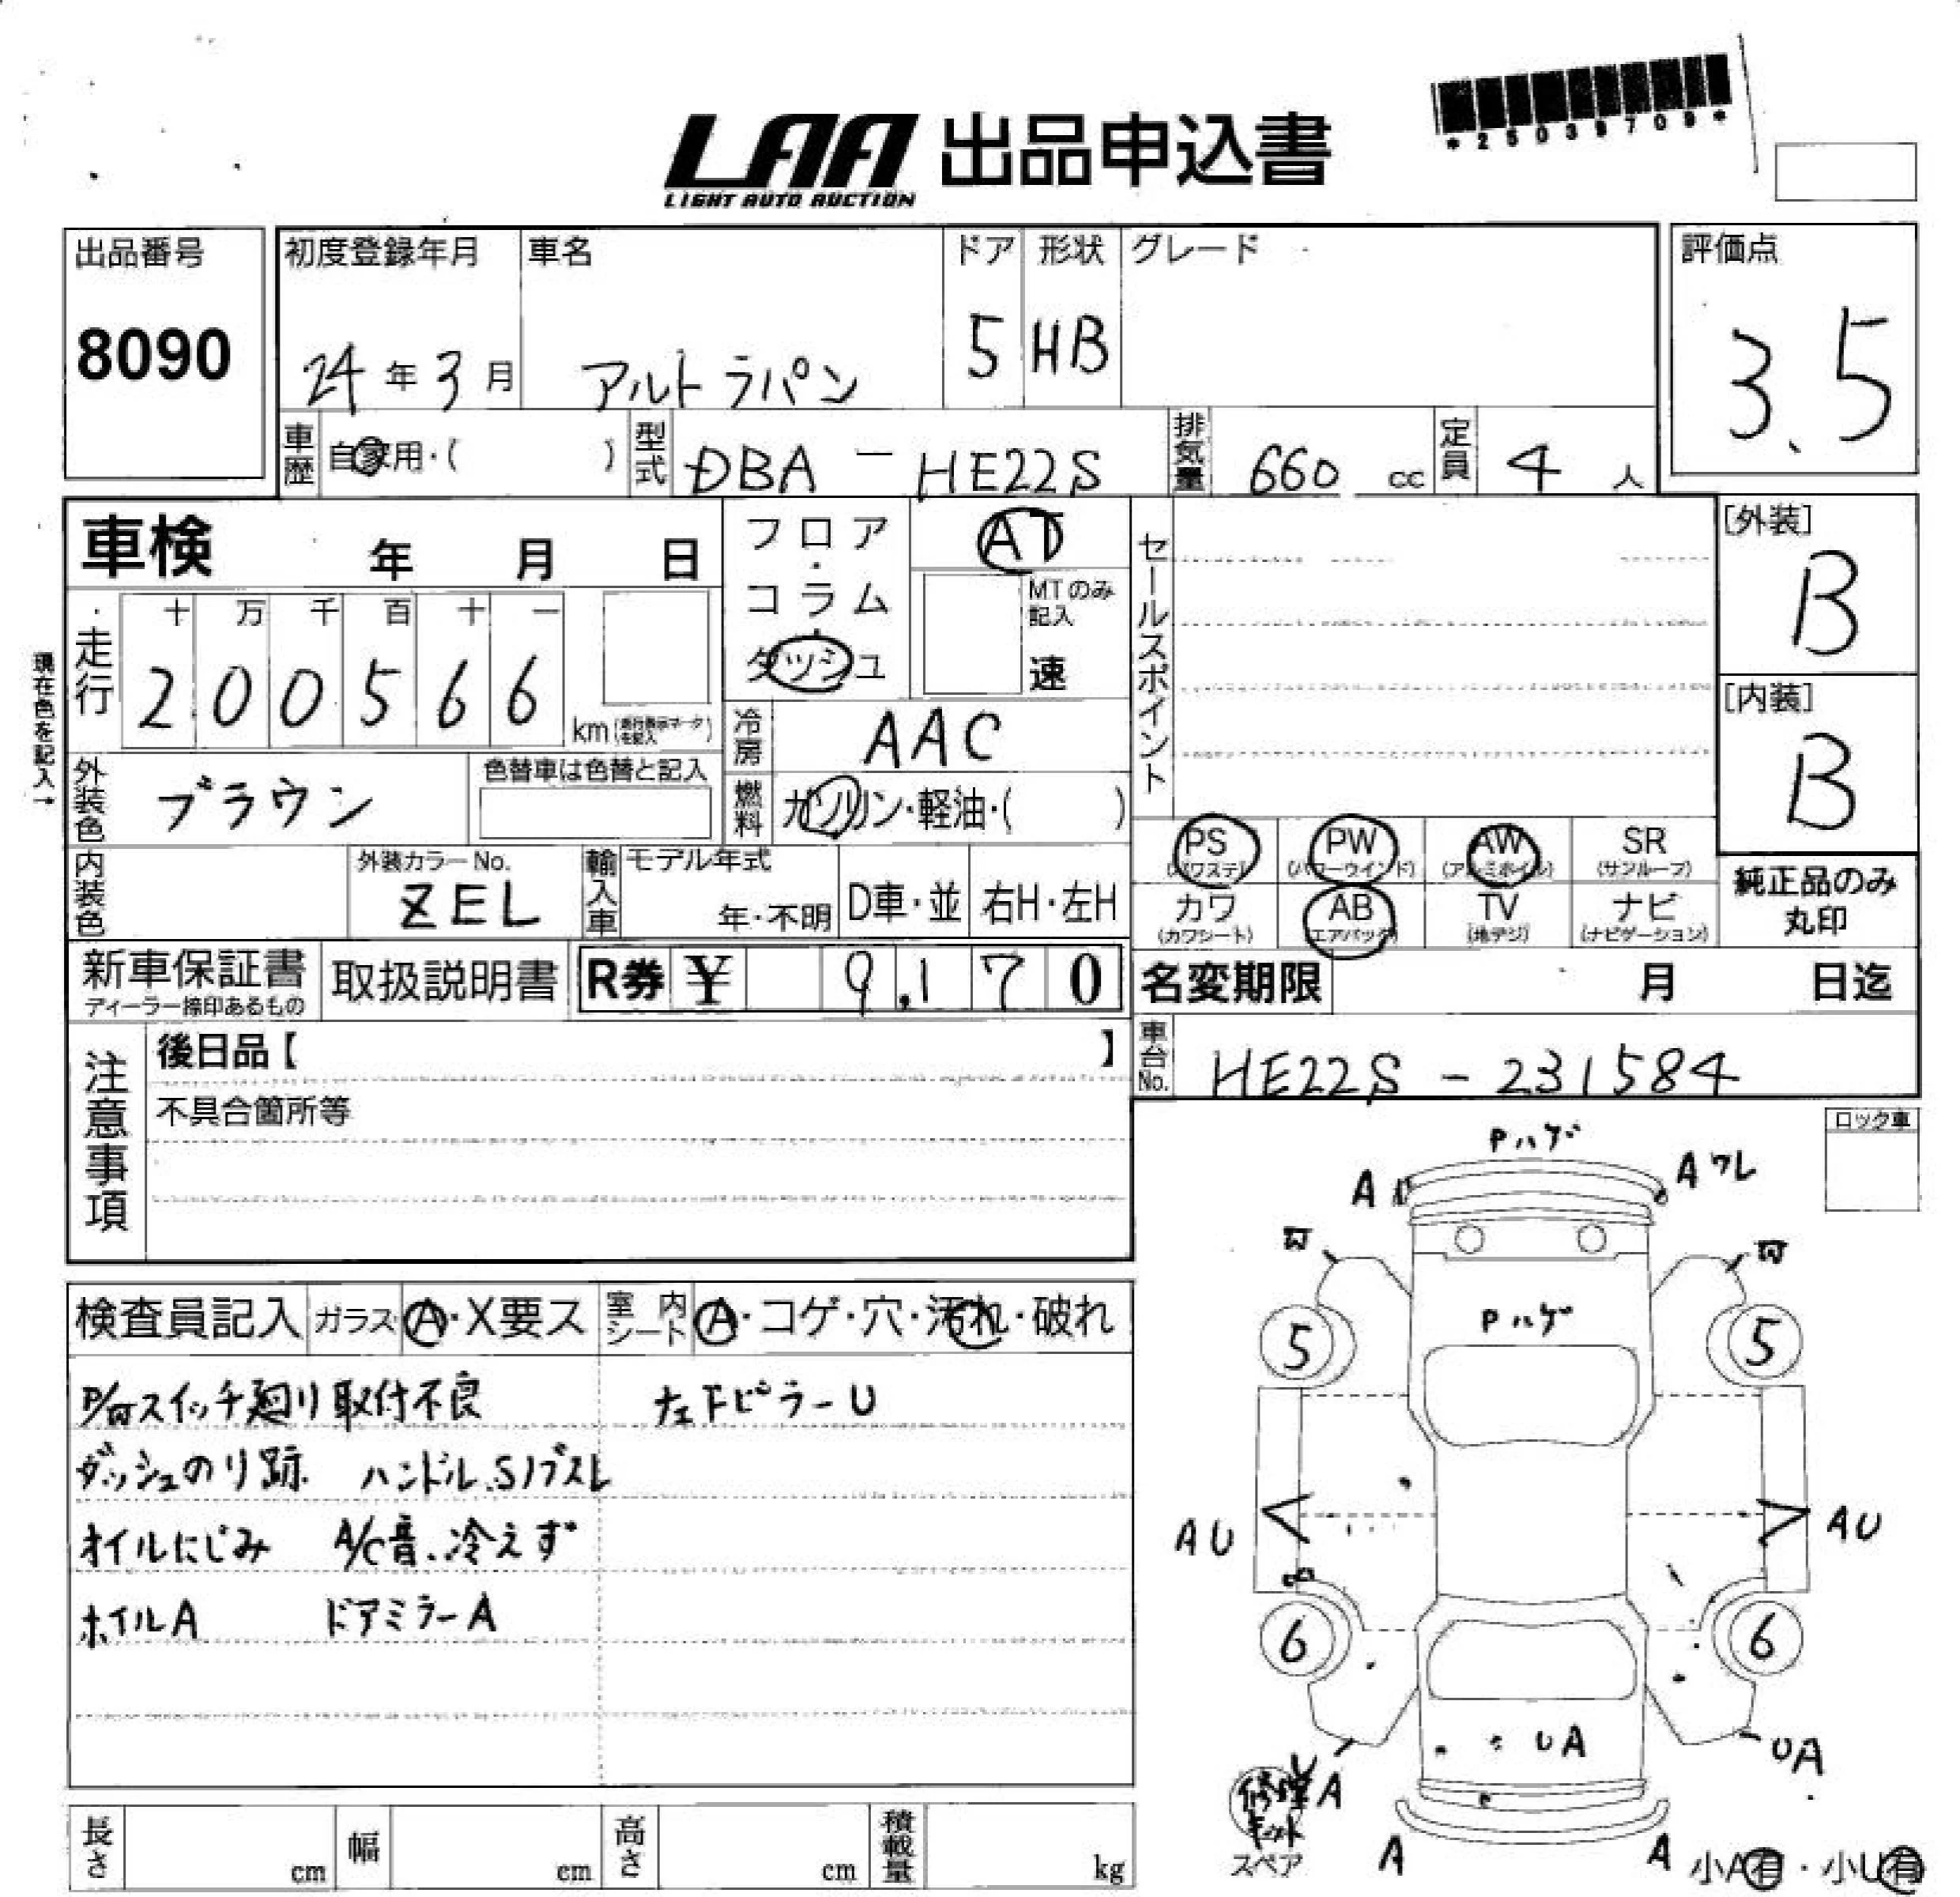 *25039709*
LAA 出品申込書
LIGHT AUTO AUCTION
出品番号 初度登録年月 車名 ドア 形状 グレード 評価点
8090 24年3月 アルトラパン 5 HB 3.5
車歴 自家用・( ) 型式 DBA-HE22S 排気量 660 cc 定員 4 人
車検 年 月 日
フロア・コラム・ダッシュ
AT
MTのみ記入
速
セールスポイント
[外装]
B
現在色を記入→
走行 十 万 千 百 十 一
2 0 0 5 6 6 km (走行表示マークを記入)
冷房 AAC
[内装]
B
外装色 ブラウン 色替車は色替と記入
燃料 ガソリン・軽油・( )
PS PW AW SR
(パワステ) (パワーウインド) (アルミホイル) (サンルーフ)
純正品のみ
丸印
内装色 外装カラーNo. ZEL 輸入車 モデル年式 年・不明 D車・並 右H・左H
カワ AB TV ナビ
(カワシート) (エアバック) (地デジ) (ナビゲーション)
新車保証書 取扱説明書 R券 ¥ 9,170 名変期限 月 日迄
ディーラー捺印あるもの
注意事項
後日品【 】
車台No. HE22S-231584
不具合箇所等
ロック車
Pハゲ
A A ワレ
Pハゲ
5 5
AU AU
6 6
UA
UA
A
修理キット
スペア
A A
小A有・小U有
検査員記入 ガラス A・X要ス 室内シート A・コゲ・穴・汚れ・破れ
スイッチ廻り取付不良 左下ピラーU
ダッシュのり跡 ハンドル、Sノブスレ
オイルにじみ A/C音、冷えず
ホイルA ドアミラーA
長さ cm 幅 cm 高さ cm 積載量 kg